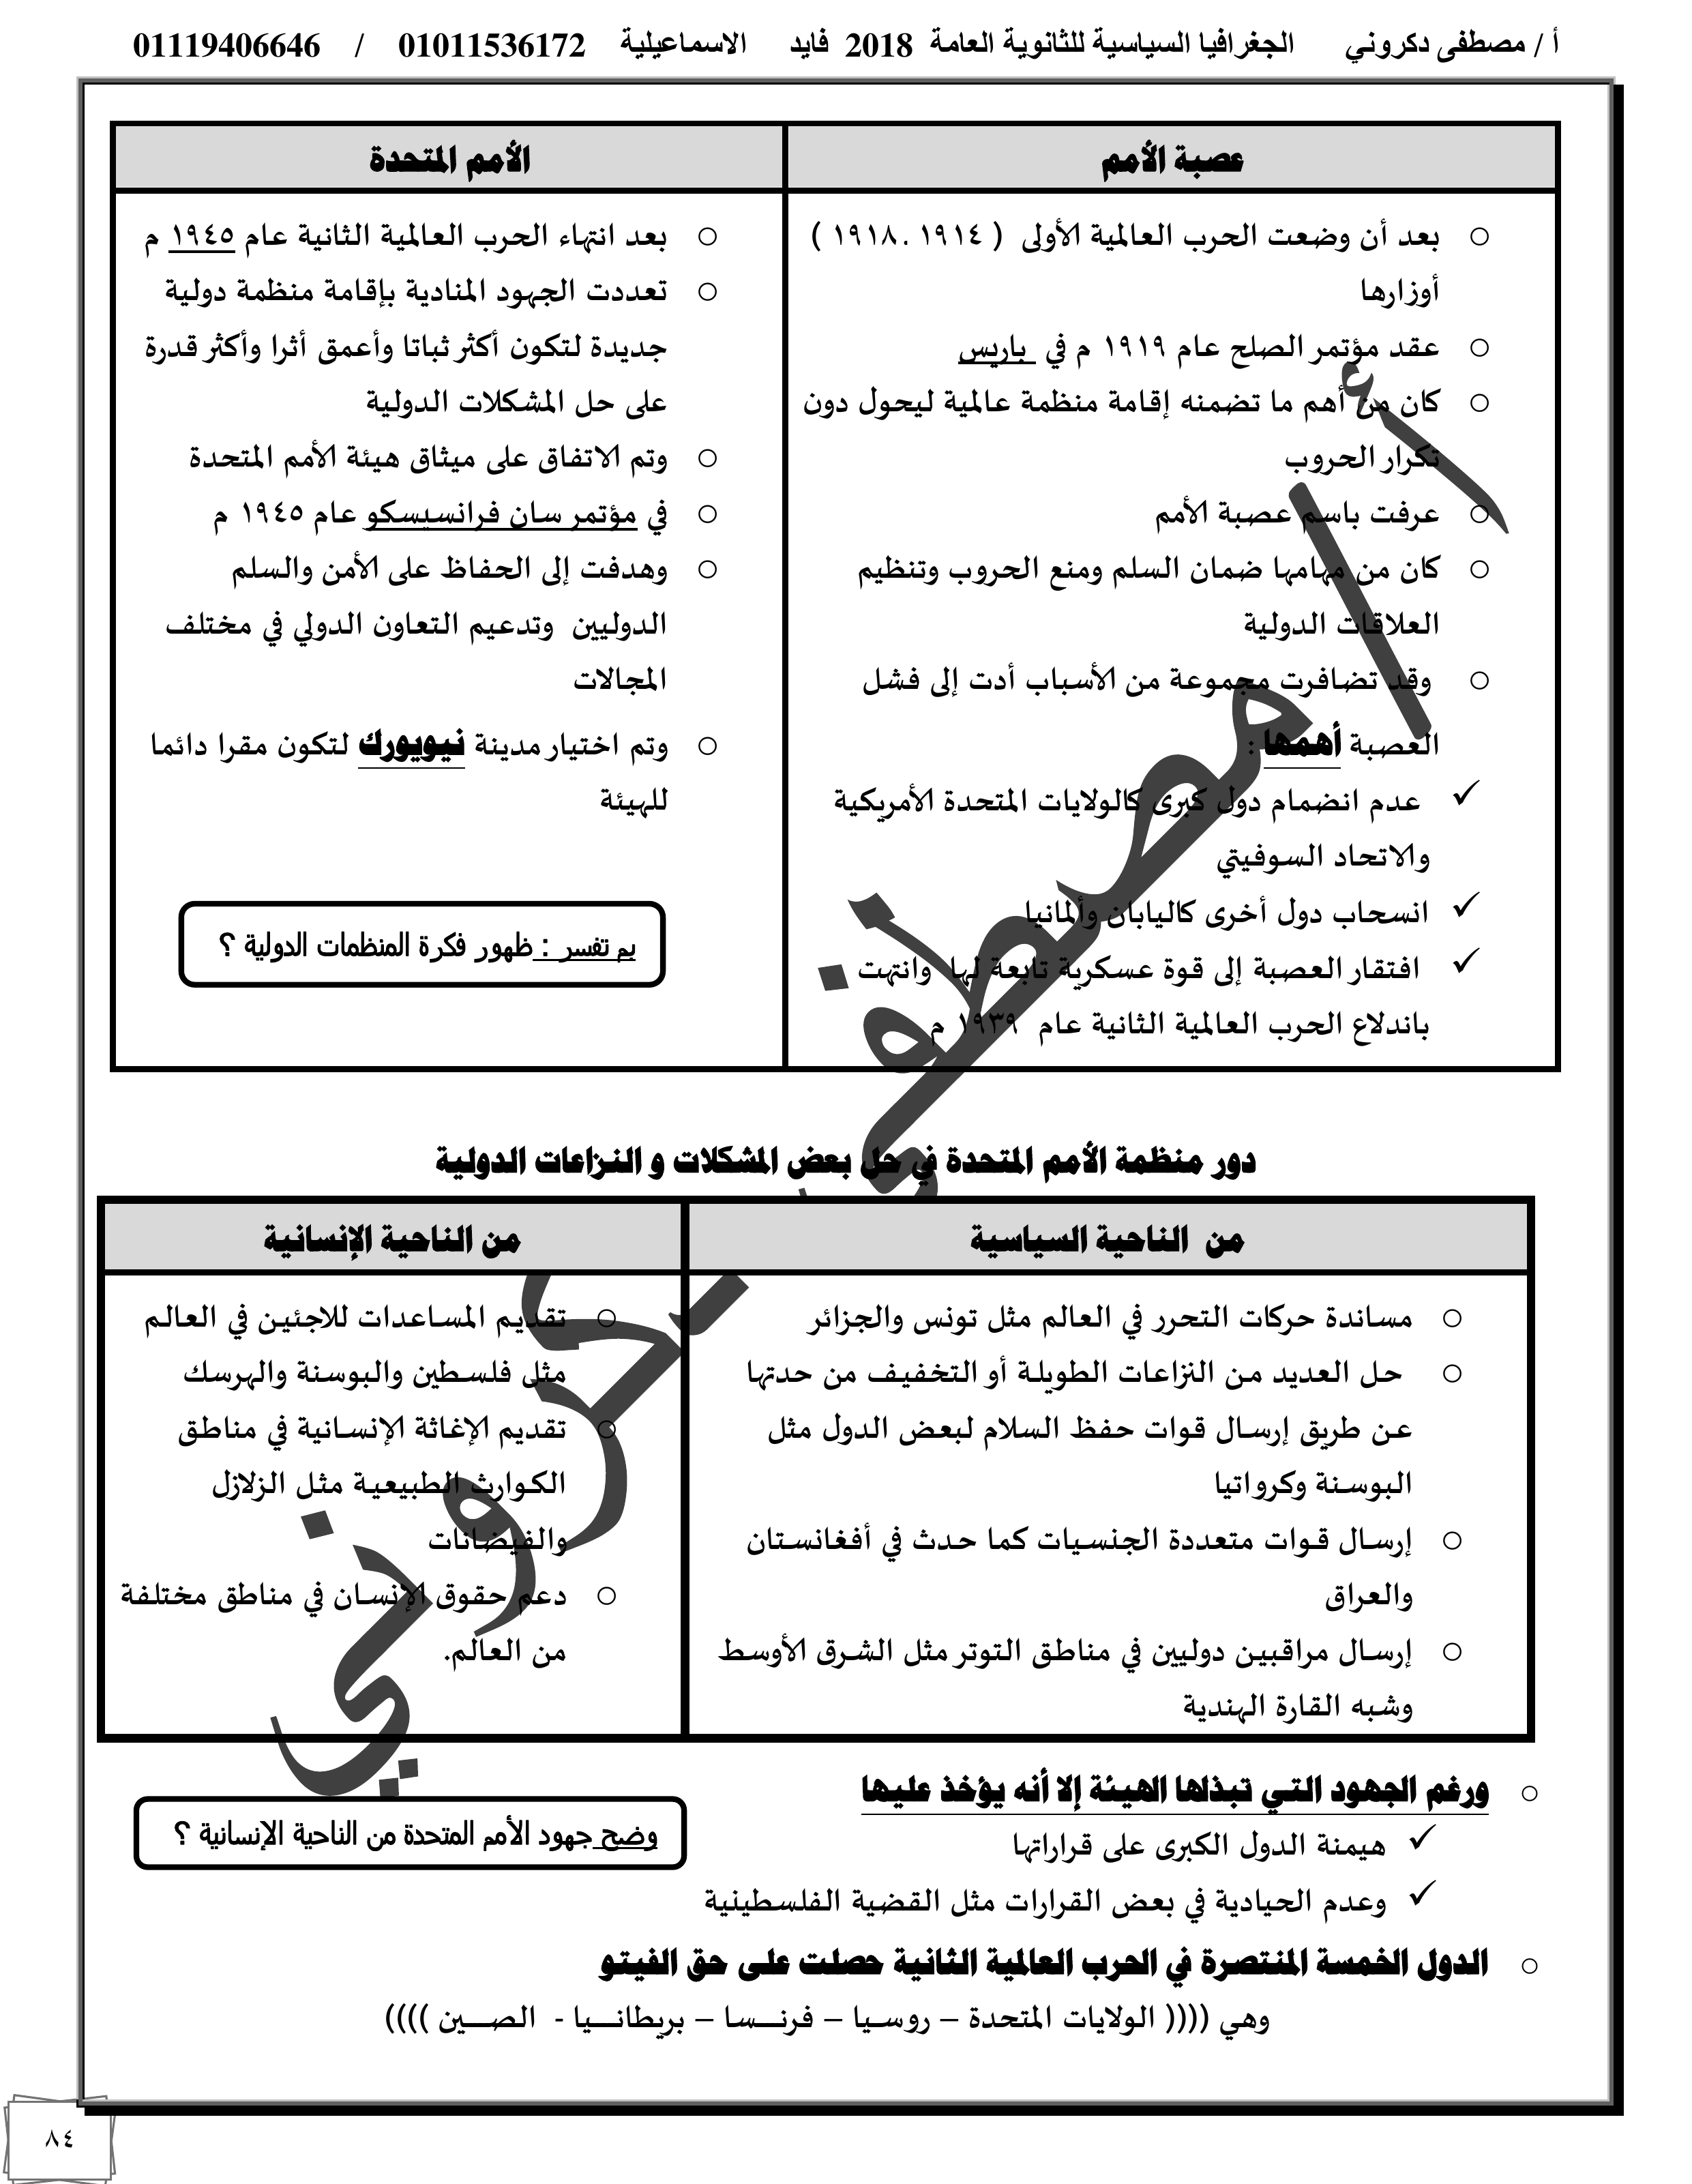 أ / مصطفى دكروني الجغرافيا السياسية للثانوية العامة 2018 فايد الاسماعيلية 01011536172 / 01119406646
عصبة الأمم
بعد أن وضعت الحرب العالمية الأولى ( ١٩١٤ . ١٩١٨ )
أوزارها
عقد مؤتمر الصلح عام ١٩١٩ م في باريس
كان من أهم ما تضمنه إقامة منظمة عالمية ليحول دون
تكرار الحروب
عرفت باسم عصبة الأمم
كان من مهامها ضمان السلم ومنع الحروب وتنظيم
العلاقات الدولية
وقد تضافرت مجموعة من الأسباب أدت إلى فشل
العصبة أهمها :
✓ عدم انضمام دول كبرى كالولايات المتحدة الأمريكية
والاتحاد السوفيتي
✓ انسحاب دول أخرى كاليابان وألمانيا
✓ افتقار العصبة إلى قوة عسكرية تابعة لها وانتهت
باندلاع الحرب العالمية الثانية عام ١٩٣٩ م
الأمم المتحدة
بعد انتهاء الحرب العالمية الثانية عام ١٩٤٥ م
تعددت الجهود المنادية بإقامة منظمة دولية
جديدة لتكون أكثر ثباتا وأعمق أثرا وأكثر قدرة
على حل المشكلات الدولية
وتم الاتفاق على ميثاق هيئة الأمم المتحدة
في مؤتمر سان فرانسيسكو عام ١٩٤٥ م
وهدفت إلى الحفاظ على الأمن والسلم
الدوليين وتدعيم التعاون الدولي في مختلف
المجالات
وتم اختيار مدينة نيويورك لتكون مقرا دائما
للهيئة
بم تفسر : ظهور فكرة المنظمات الدولية ؟
دور منظمة الأمم المتحدة في حل بعض المشكلات و النزاعات الدولية
من الناحية السياسية
مساندة حركات التحرر في العالم مثل تونس والجزائر
حل العديد من النزاعات الطويلة أو التخفيف من حدتها
عن طريق إرسال قوات حفظ السلام لبعض الدول مثل
البوسنة وكرواتيا
إرسال قوات متعددة الجنسيات كما حدث في أفغانستان
والعراق
إرسال مراقبين دوليين في مناطق التوتر مثل الشرق الأوسط
وشبه القارة الهندية
من الناحية الإنسانية
تقديم المساعدات للاجئين في العالم
مثل فلسطين والبوسنة والهرسك
تقديم الإغاثة الإنسانية في مناطق
الكوارث الطبيعية مثل الزلازل
والفيضانات
دعم حقوق الإنسان في مناطق مختلفة
من العالم.
ورغم الجهود التي تبذلها الهيئة إلا أنه يؤخذ عليها
✓ هيمنة الدول الكبرى على قراراتها
✓ وعدم الحيادية في بعض القرارات مثل القضية الفلسطينية
وضح جهود الأمم المتحدة من الناحية الإنسانية ؟
الدول الخمسة المنتصرة في الحرب العالمية الثانية حصلت على حق الفيتو
وهي (((( الولايات المتحدة – روسيا – فرنسا – بريطانيا - الصين ))))
٨٤
أ / مصطفى دكروني